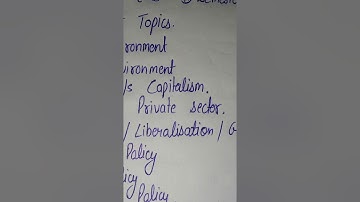 Topics.
ronment
ironment
/s Capitalism.
Private sector.
/ Liberalisation / G
Policy
icy
Policy